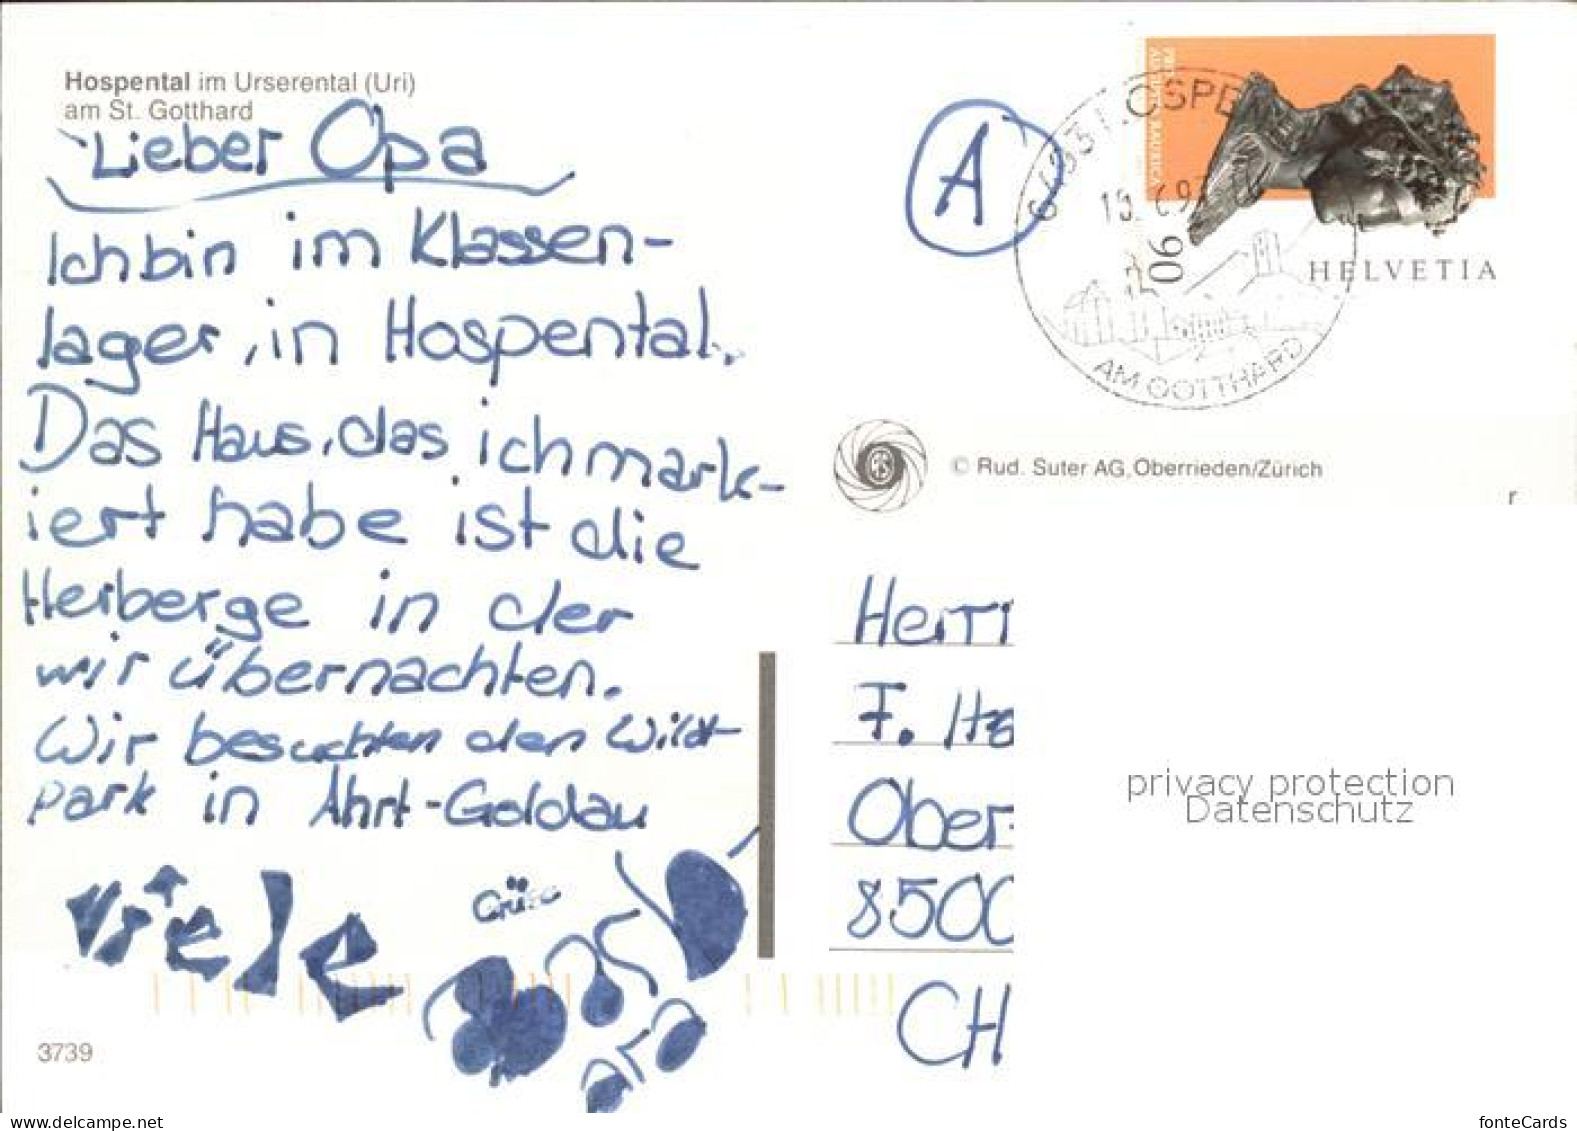 Hospental im Urserental (Uri)
am St. Gotthard
Lieber Opa
Ich bin im Klassen-
lager, in Hospental.
Das Haus, das ich mark-
iert habe ist die
Herberge in der
wir übernachten.
Wir besuchten den Wild-
park in Ahrt-Goldau
Viele
Grüße
3739
A
AM GOTTHARD
90
HELVETIA
© Rud. Suter AG, Oberrieden/Zürich
r
Herrn
F.
Ober
8500
CH
privacy protection
Datenschutz
www.delcampe.net
fonteCards